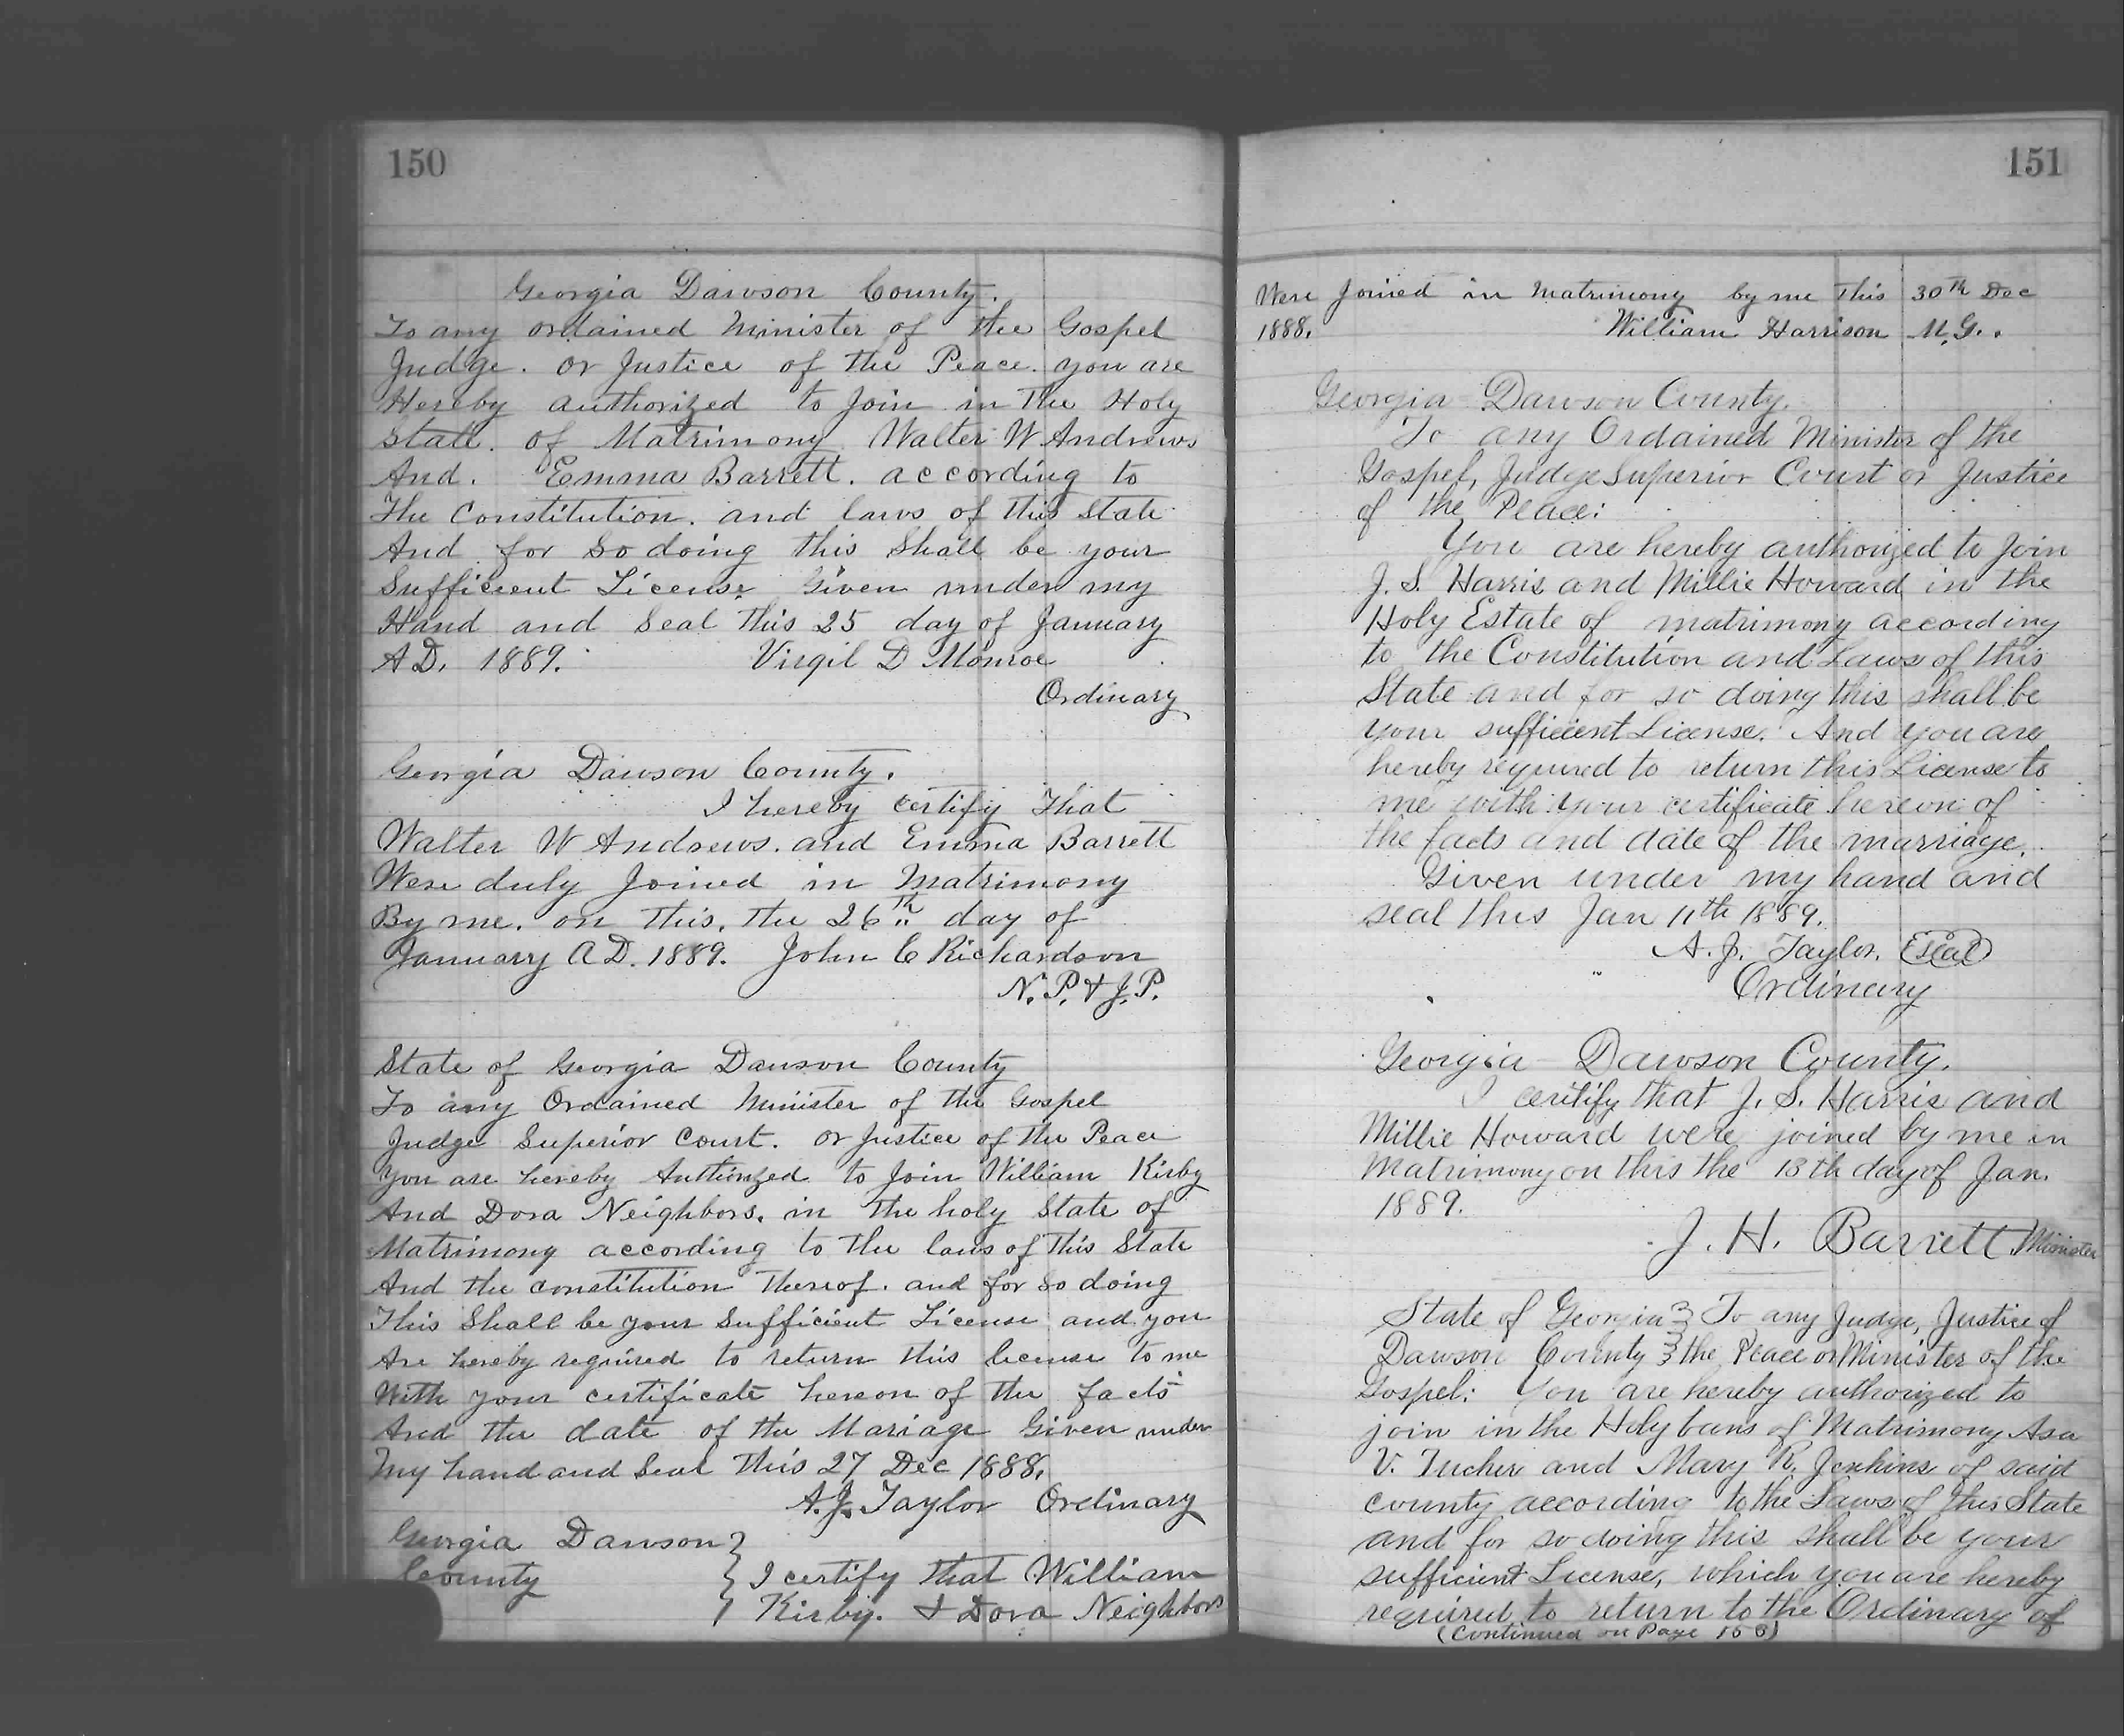 150
Georgia Dawson County.
To any ordained Minister of the Gospel
Judge. or Justice of the Peace. you are
Hereby authorized to Join in The Holy
State. of Matrimony Walter W Andrews
And. Emma Barrett. according to
The Constitution. and laws of this State
And for So doing this Shall be your
Sufficient License Given under my
Hand and Seal This 25 day of January
A.D. 1889. Virgil D Monroe
Ordinary
Georgia Dawson County.
I hereby certify That
Walter W Andrews. and Emma Barrett
Were duly Joined in Matrimony
By me. on this. the 26th day of
January A D. 1889. John C Richardson
N. P. & J. P.
State of Georgia Dawson County
To any Ordained Minister of the Gospel
Judge Superior Court. or Justice of the Peace
You are hereby Authorized to Join William Kirby
And Dora Neighbors. in the holy State of
Matrimony according to the laws of This State
And the constitution Thereof. and for So doing
This Shall be your Sufficient License and you
Are hereby required to return this license to me
With your certificate hereon of the facts
And the date of the Mariage Given under
My hand and Seal This 27 Dec 1888.
A.J. Taylor Ordinary
Georgia Dawson
County I certify that William
Kirby. & Dora Neighbors
151
Were Joined in Matrimony by me This 30th Dec
1888. William Harrison M.G.
Georgia Dawson County.
To any Ordained Minister of the
Gospel, Judge Superior Court or Justice
of the Peace:
You are hereby authorized to join
J. S. Harris and Millie Howard in the
Holy Estate of matrimony according
to the Constitution and Laws of this
State and for so doing this shall be
your sufficient License. And you are
hereby required to return this License to
me with your certificate hereon of
the facts and date of the marriage.
Given under my hand and
seal this Jan 11th 1889.
A. J. Taylor, Seal
Ordinary
Georgia Dawson County.
I certify that J. S. Harris and
Millie Howard were joined by me in
Matrimony on this the 13th day of Jan.
1889.
J. H. Barrett Minister
State of Georgia To any Judge, Justice of
Dawson County the Peace or Minister of the
Gospel: You are hereby authorized to
join in the Holy bans of Matrimony Asa
V. Tucker and Mary R. Jenkins of said
county according to the Laws of this State
and for so doing this shall be your
sufficient License, which you are hereby
required to return to the Ordinary of
(Continued on Page 153)